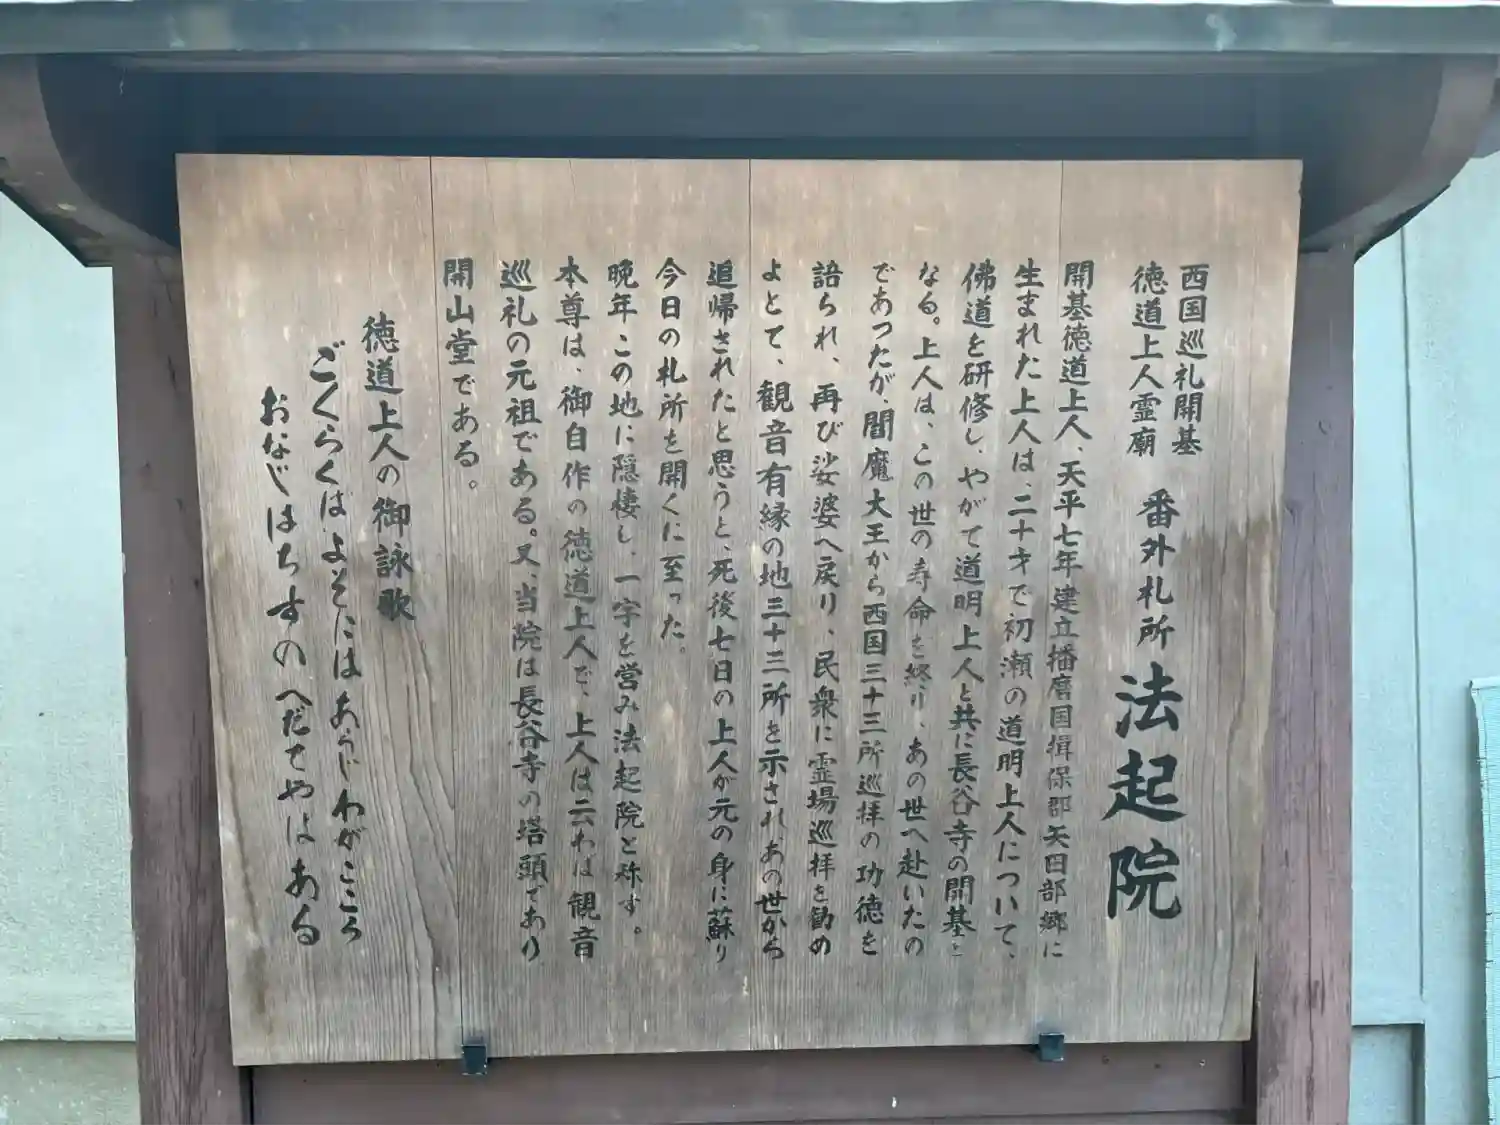 西国巡礼開基
徳道上人霊廟 番外札所 法起院
開基徳道上人、天平七年建立播磨国揖保郡矢田部郷に
生まれた上人は、二十才で初瀬の道明上人について、
佛道を研修し、やがて道明上人と共に長谷寺の開基と
なる。上人は、この世の寿命を終り、あの世へ赴いたの
であったが、閻魔大王から西国三十三所巡拝の功徳を
語られ、再び娑婆へ戻り、民衆に霊場巡拝を勧め
よとて、観音有縁の地三十三所を示され、あの世から
追帰されたと思うと、死後七日の上人が元の身に蘇り
今日の札所を開くに至った。
晩年この地に隠棲し、一宇を営み法起院と称す。
本尊は、御自作の徳道上人で、上人は云わば観音
巡礼の元祖である。又、当院は長谷寺の塔頭であり
開山堂である。
徳道上人の御詠歌
ごくらくばよそにはあらじわがこころ
おなじはちすのへだてやはある